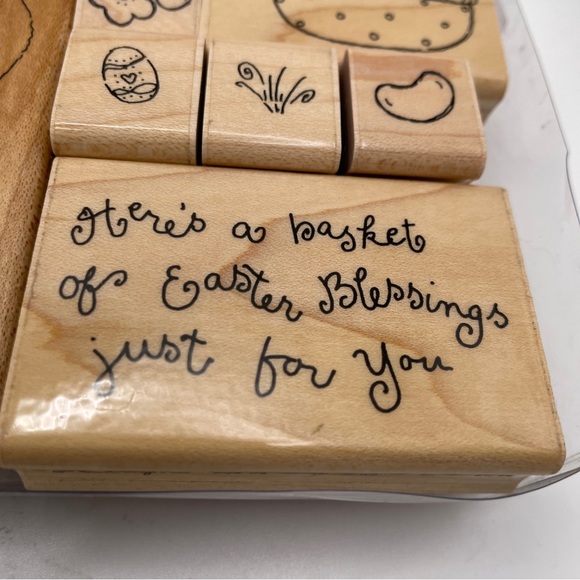 Here's a basket
of Easter Blessings
just for You